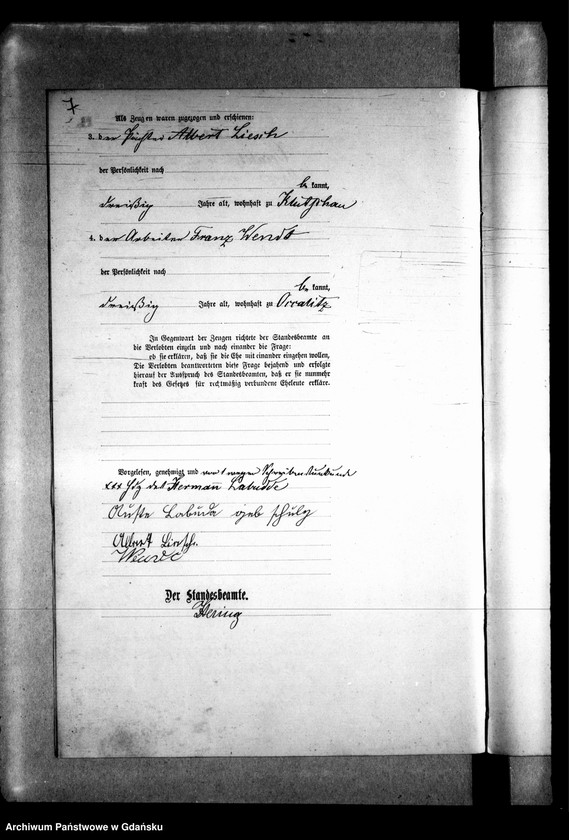 7
Als Zeugen waren zugezogen und erschienen:
3. der Albert Liesch
der Persönlichkeit nach
be kannt,
dreißig Jahre alt, wohnhaft zu Klutschau
4. der Arbeiter Franz Wendt
der Persönlichkeit nach
be kannt,
dreißig Jahre alt, wohnhaft zu
In Gegenwart der Zeugen richtete der Standesbeamte an
die Verlobten einzeln und nach einander die Frage:
ob sie erklären, daß sie die Ehe mit einander eingehen wollen,
Die Verlobten beantworteten diese Frage bejahend und erfolgte
hierauf der Ausspruch des Standesbeamten, daß er sie nunmehr
kraft des Gesetzes für rechtmäßig verbundene Eheleute erkläre.
Vorgelesen, genehmigt und wegen Schreibensunkunde
+++ Hz des Hermann Labudde
Labuda geb Schulz
Albert Liesch.
Wendt
Der Standesbeamte.
Hering
Archiwum Państwowe w Gdańsku